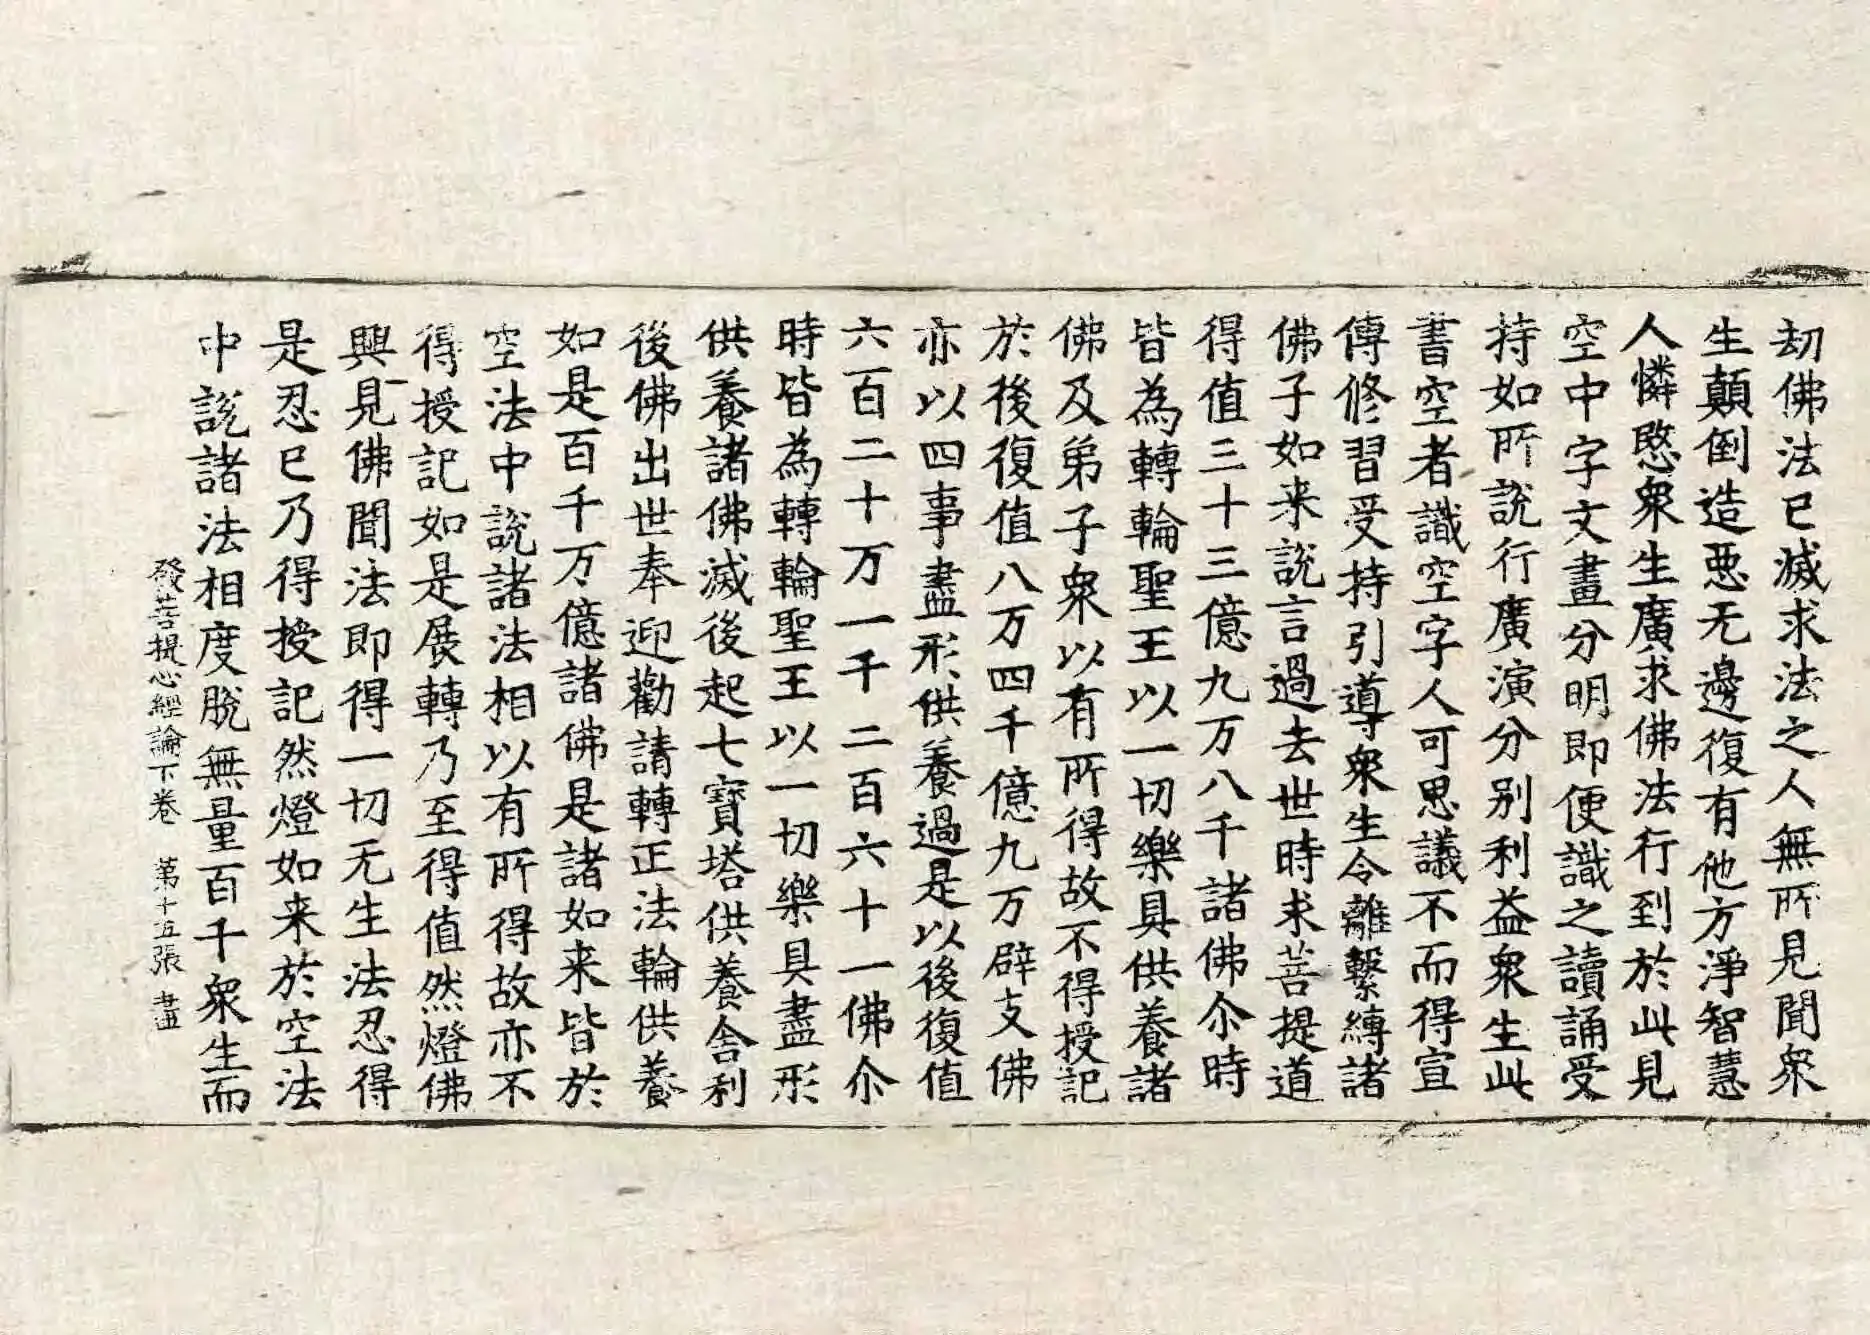 劫佛法已滅求法之人無所見聞衆
生顛倒造惡无邊復有他方淨智慧
人憐愍衆生廣求佛法行到於此見
空中字文畫分明即便識之讀誦受
持如所說行廣演分別利益衆生此
書空者識空字人可思議不而得宣
傳修習受持引導衆生令離繫縛諸
佛子如来說言過去世時求菩提道
得值三十三億九万八千諸佛尒時
皆為轉輪聖王以一切樂具供養諸
佛及弟子衆以有所得故不得授記
於後復值八万四千億九万辟支佛
亦以四事盡形供養過是以後復值
六百二十万一千二百六十一佛尒
時皆為轉輪聖王以一切樂具盡形
供養諸佛滅後起七寶塔供養舍利
後佛出世奉迎勸請轉正法輪供養
如是百千万億諸佛是諸如来皆於
空法中說諸法相以有所得故亦不
得授記如是展轉乃至得值然燈佛
興見佛聞法即得一切无生法忍得
是忍已乃得授記然燈如来於空法
中說諸法相度脫無量百千衆生而
發菩提心經論下卷 第十五張 盡